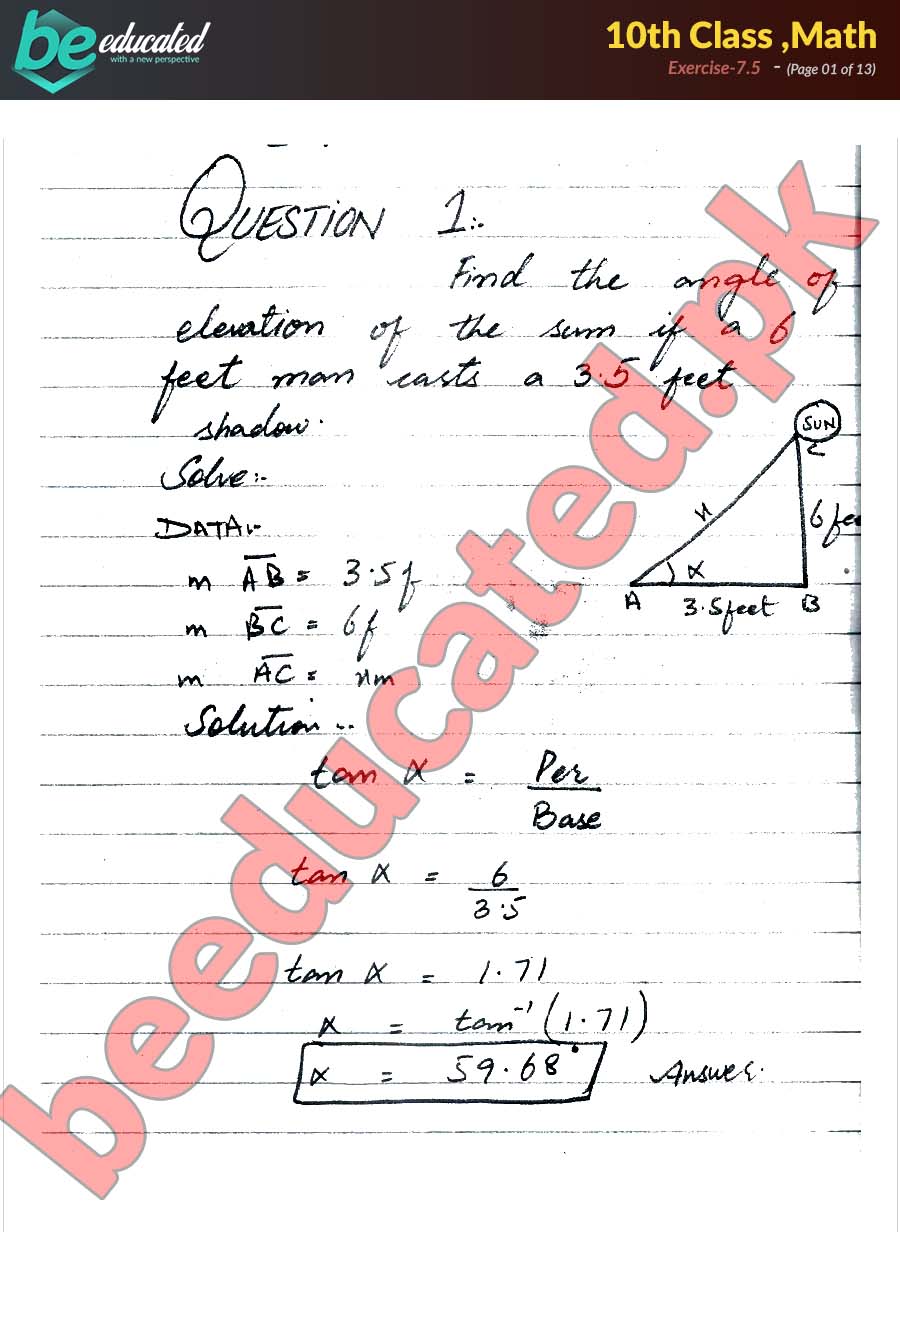 be educated
with a new perspective
10th Class ,Math
Exercise-7.5 - (Page 01 of 13)
QUESTION 1:-
Find the angle of
elevation of the sum if a 6
feet man casts a 3.5 feet
shadow.
Solve:-
SUN
C
DATA:-
x
6 fee
m AB = 3.5f
α
A 3.5feet B
m BC = 6f
m AC = xm
Solution:-
tan α = Per
Base
tan α = 6
3.5
tan α = 1.71
α = tan⁻¹ (1.71)
α = 59.68° Answer.
beeducated.pk